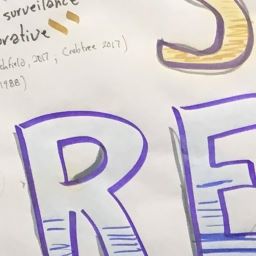 surveillance
orative
hfield, 2017, Crabtree 2017)
1988)
S
RE